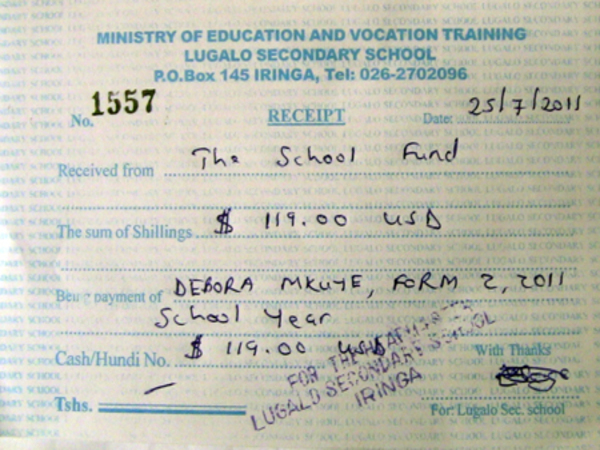 MINISTRY OF EDUCATION AND VOCATION TRAINING
LUGALO SECONDARY SCHOOL
P.O.Box 145 IRINGA, Tel: 026-2702096
No. 1557 RECEIPT Date: 25/7/2011
Received from The School Fund
The sum of Shillings $ 119.00 USD
Being payment of DEBORA MKUYE, FORM 2, 2011
School Year
Cash/Hundi No. $ 119.00 USD With Thanks
FOR THE
LUGALO SECONDARY SCHOOL
IRINGA
Tshs. For: Lugalo Sec. school